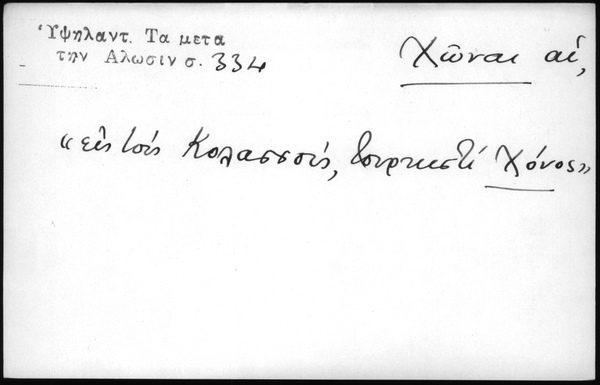 Ὑψηλαντ. Τα μετα
την Αλωσιν σ. 334
Χῶναι αἱ,
«εἰς τοὺς Κολασσούς, τουρκιστί Χόνος»